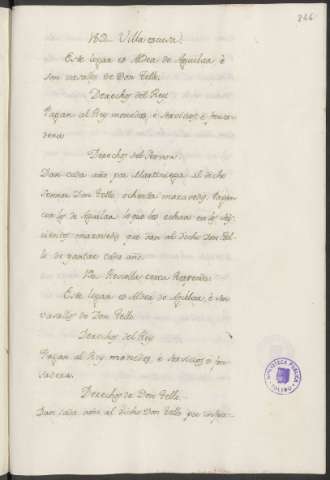 246
182. Villaescusa.
Este logar es Aldea de Aguilar, è
son vasallos de Don Tello.
Derechos del Rey.
Pagan al Rey monedas, è servicios, è fonsadera
Derechos del Señor.
Dan cada año por Martiniega al dicho
Señor Don Tello, ochenta maravedis. Pagan
con los de Aguilar lo que les echan en los
maravedis que dan al dicho Don Tello
de yantar cada año.
Este logar es Aldea de Aguilar, è son
vasallos de Don Tello.
Derechos del Rey
Pagan al Rey monedas, è servicios, è fonsadera.
Derechos de Don Tello.
Dan cada año al dicho Don Tello por
BIBLIOTECA PUBLICA
TOLEDO